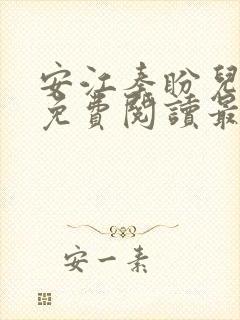 安江秦盼兒
免費閱讀最
安一素